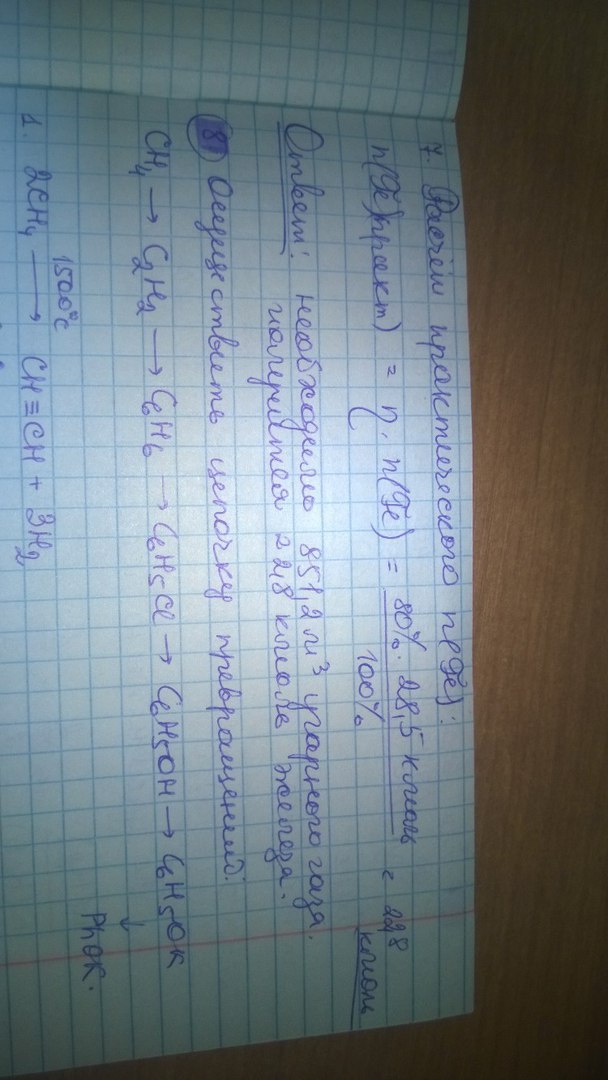 7. Расчёт практического n(Fe):
n(Fe)практ) = η · n(Fe) = 80% · 28,5 кмоль / 100% = 228 кмоль
Ответ: необходимо 851,2 м³ угарного газа.
получится 228 кмоль железа.
8) Осуществить цепочку превращений:
CH₄ → C₂H₂ → C₆H₆ → C₆H₅Cl → C₆H₅OH → C₆H₅OK
↓
PhOK.
1. 2CH₄ —1500°C→ CH≡CH + 3H₂